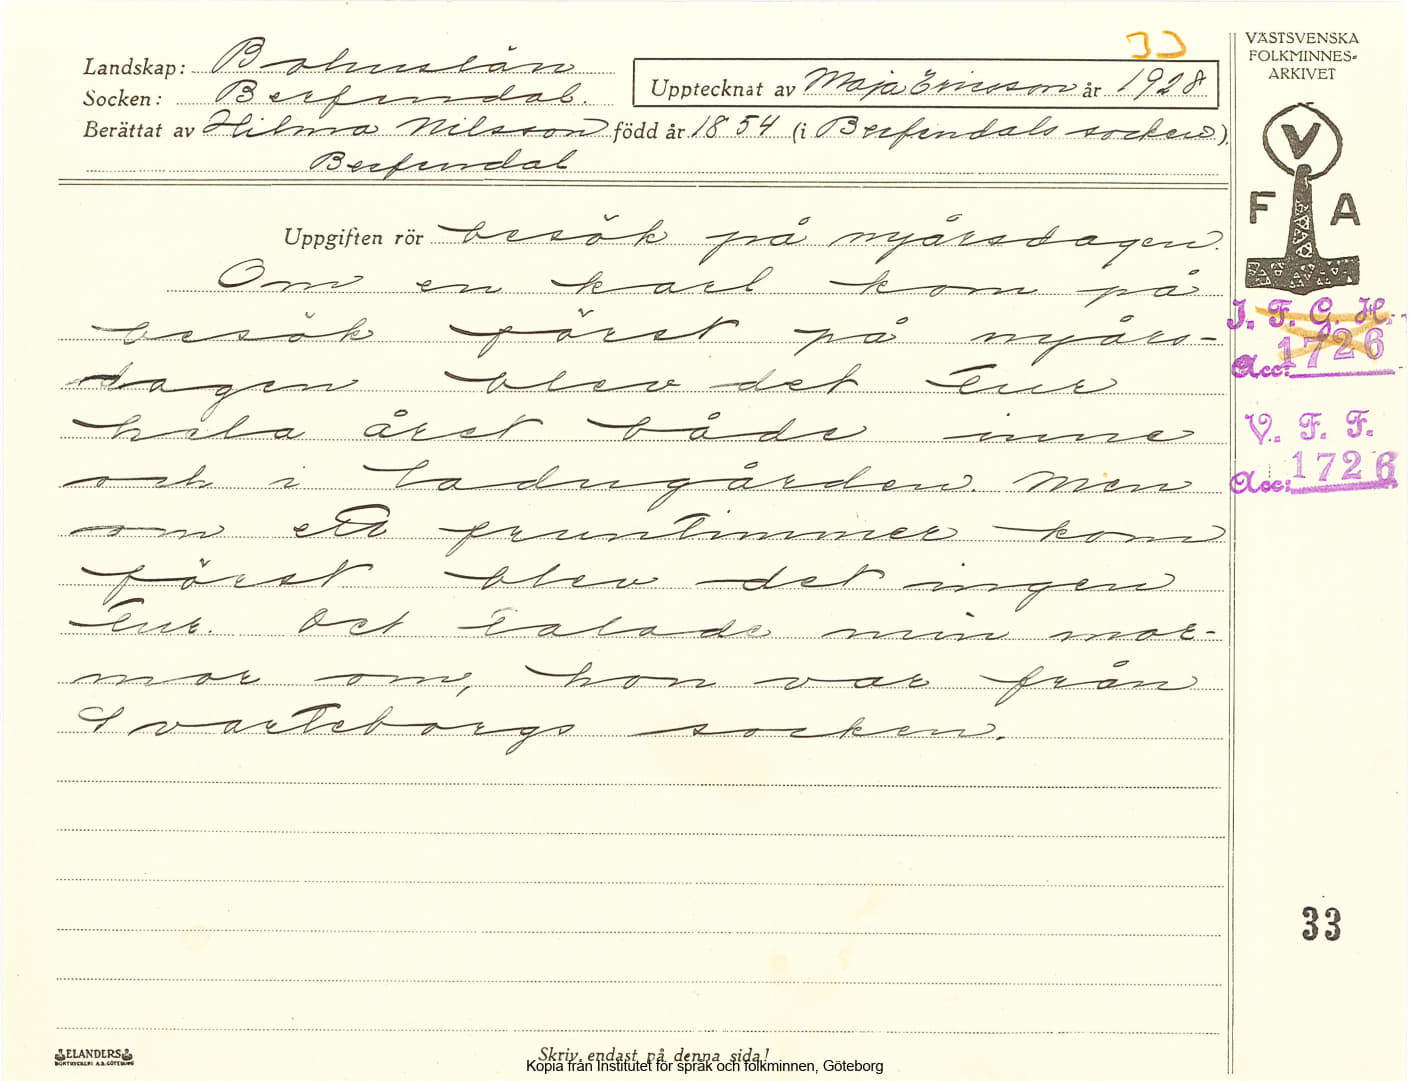 33
VÄSTSVENSKA
FOLKMINNES-
ARKIVET
Landskap: Bohuslän
Socken: Berfendal.
Upptecknat av Maja Ericsson år 1928
Berättat av Hilma Nilsson född år 1854 (i Berfendals socken).
Berfendal
V
F A
Uppgiften rör besök på nyårsdagen.
Om en karl kom på
besök först på nyårs-
dagen blev det tur
hela året både inne
och i ladugården. Men
om ett fruntimmer kom
först blev det ingen
tur. Det talade min mor-
mor om, hon var från
Svarteborgs socken.
I. F. G. H.
Acc: 1726
V. F. F.
Acc: 1726
33
ELANDERS
BOKTRYCKERI A.B. GÖTEBORG
Skriv endast på denna sida!
Kopia från Institutet för språk och folkminnen, Göteborg